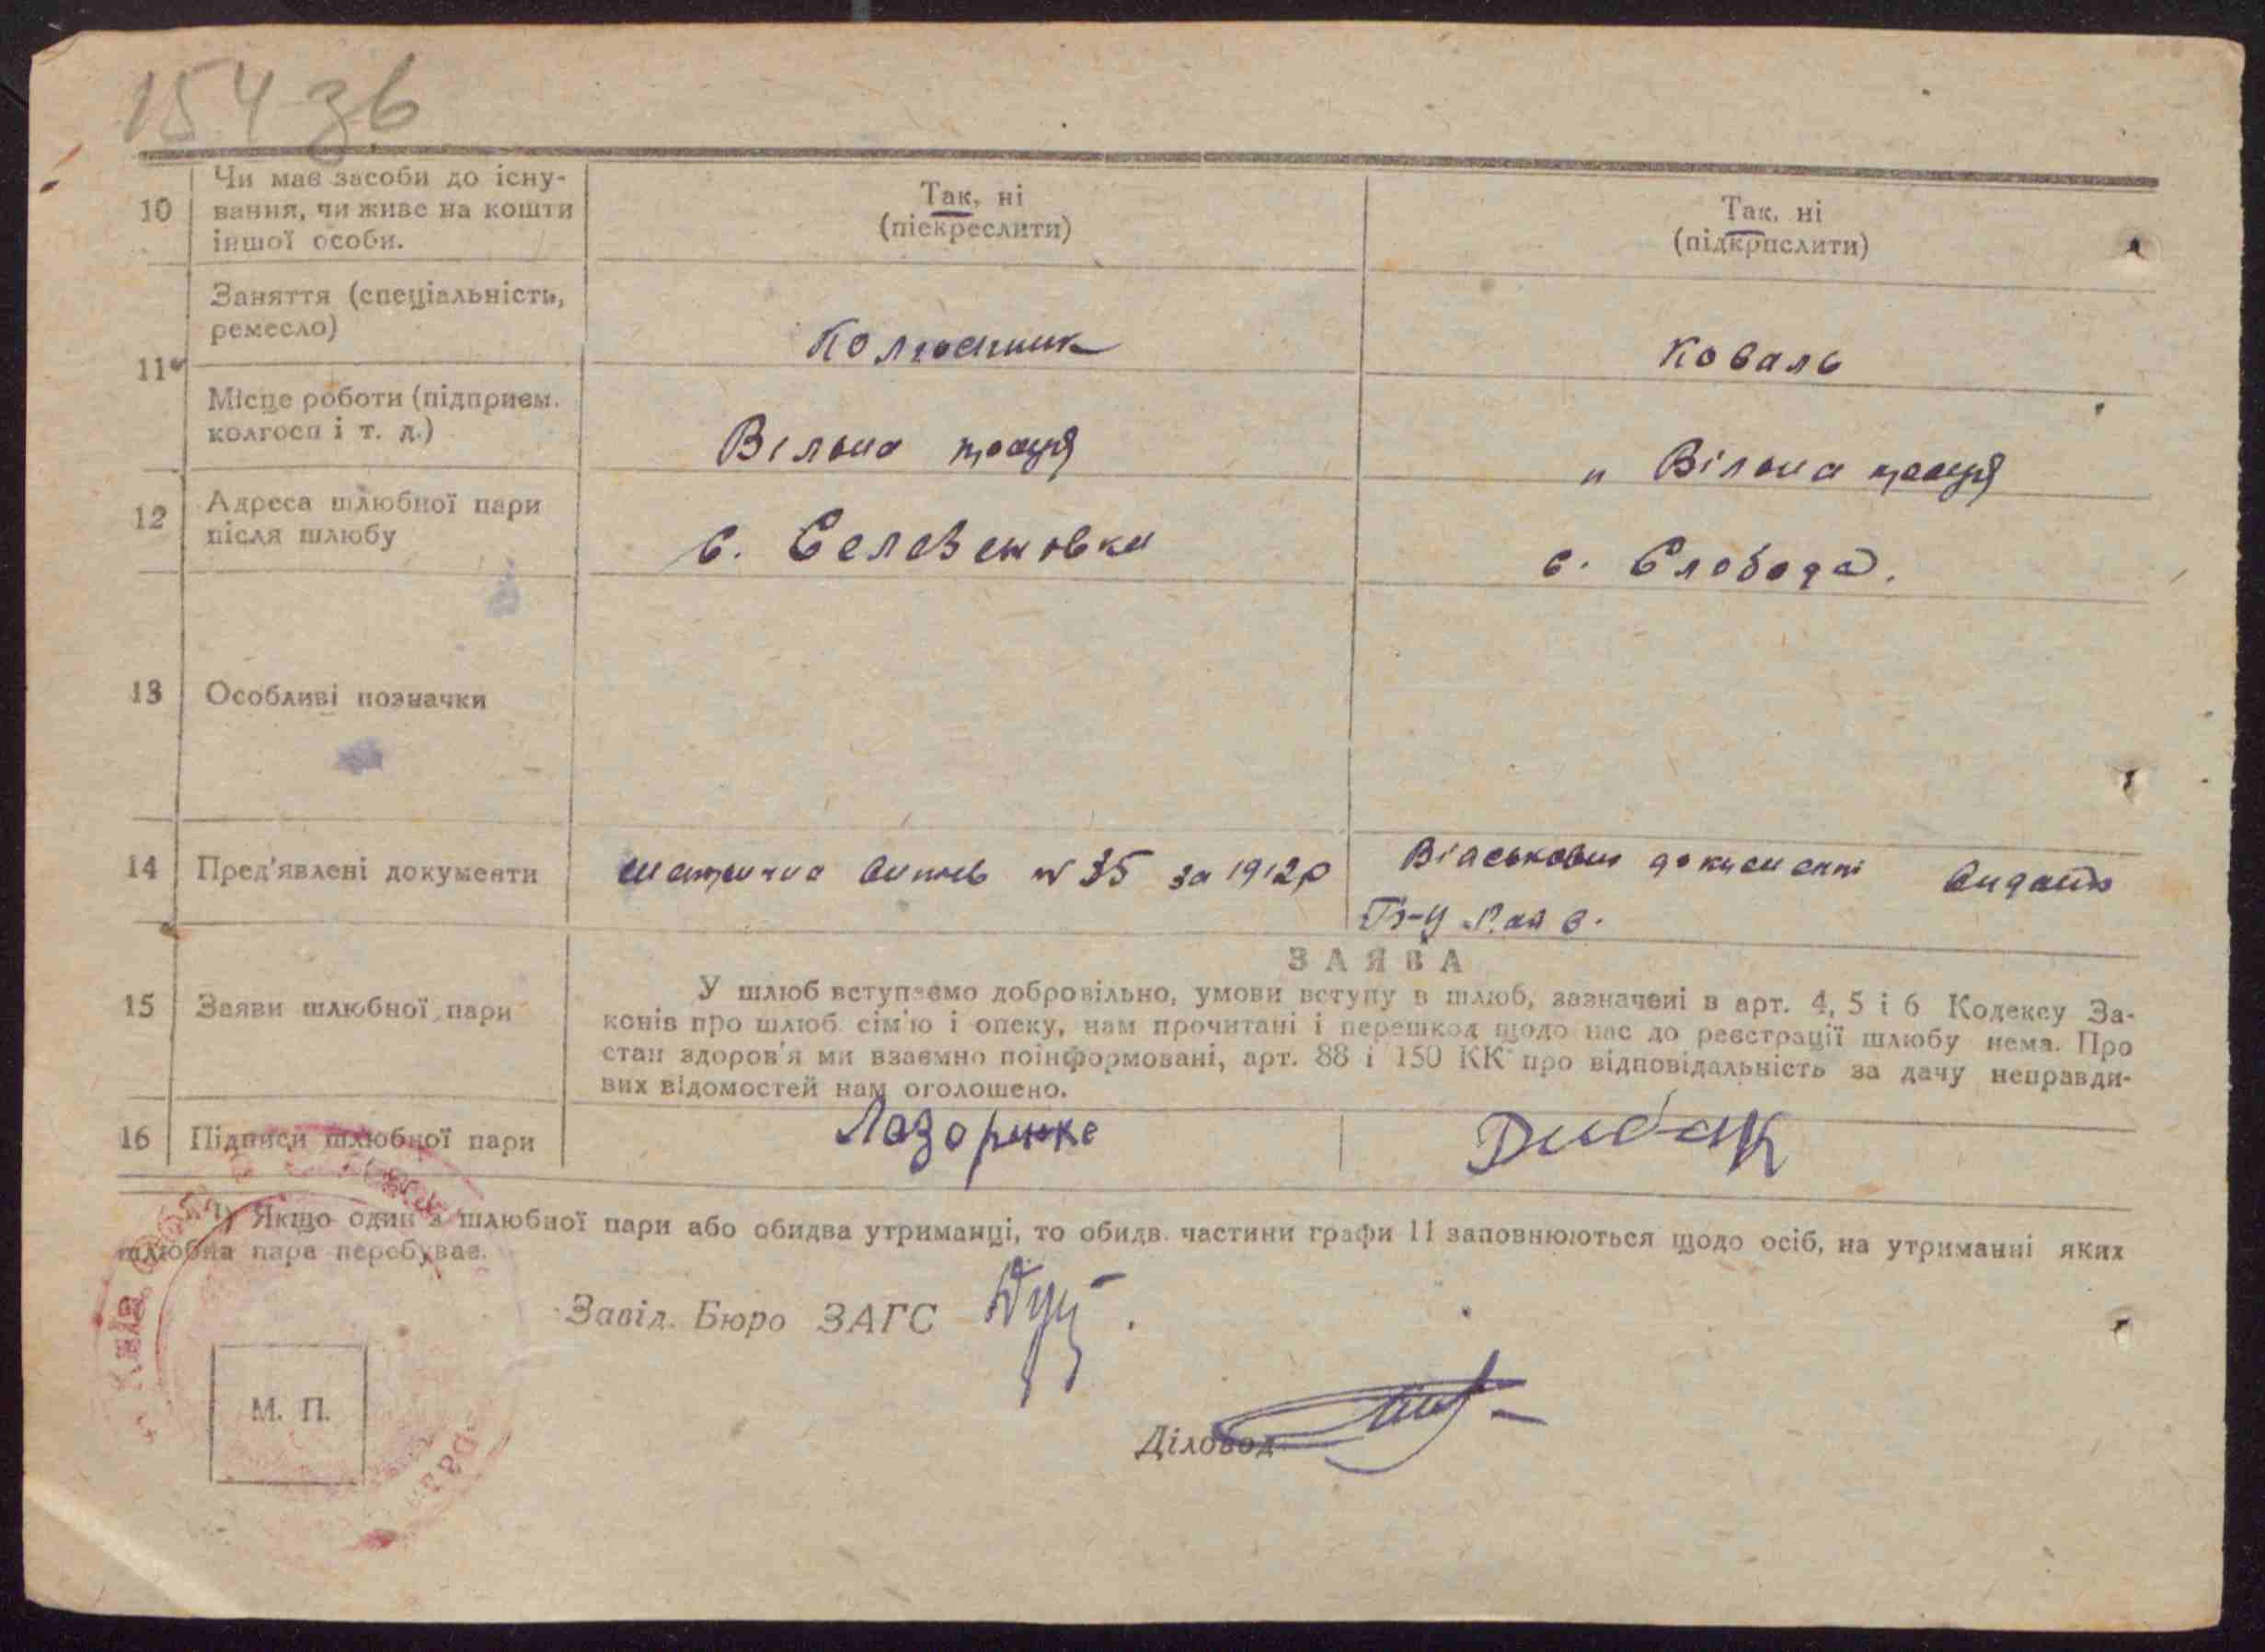 154 зв
10
Чи має засоби до існу-
вання, чи живе на кошти
іншої особи.
Так, ні
(піскреслити)
Так, ні
(підкрпслити)
11
Заняття (спеціальність,
ремесло)
Колгоспник
Коваль
Місце роботи (підприєм.
колгосп і т. д.)
Вільна праця
„ Вільна праця
12
Адреса шлюбної пари
після шлюбу
с. Селезеновка
с. Слобода.
13
Особливі позначки
14
Пред'явлені документи
Метрична випись № 35 за 1912р
Військовий документ видано
Б-Ц Рай в.
15
Заяви шлюбної пари
ЗАЯВА
У шлюб вступаємо добровільно, умови вступу в шлюб, зазначені в арт. 4, 5 і 6 Кодексу За-
конів про шлюб сім'ю і опеку, нам прочитані і перешкод щодо нас до реєстрації шлюбу нема. Про
стан здоров'я ми взаємно поінформовані, арт. 88 і 150 КК про відповідальність за дачу неправди-
вих відомостей нам оголошено.
16
Підписи шлюбної пари
Лазоренко
Дибак
1) Якщо один з шлюбної пари або обидва утриманці, то обидв. частини графи 11 заповнюються щодо осіб, на утриманні яких
шлюбна пара перебуває.
Завід. Бюро ЗАГС
М. П.
Діловод